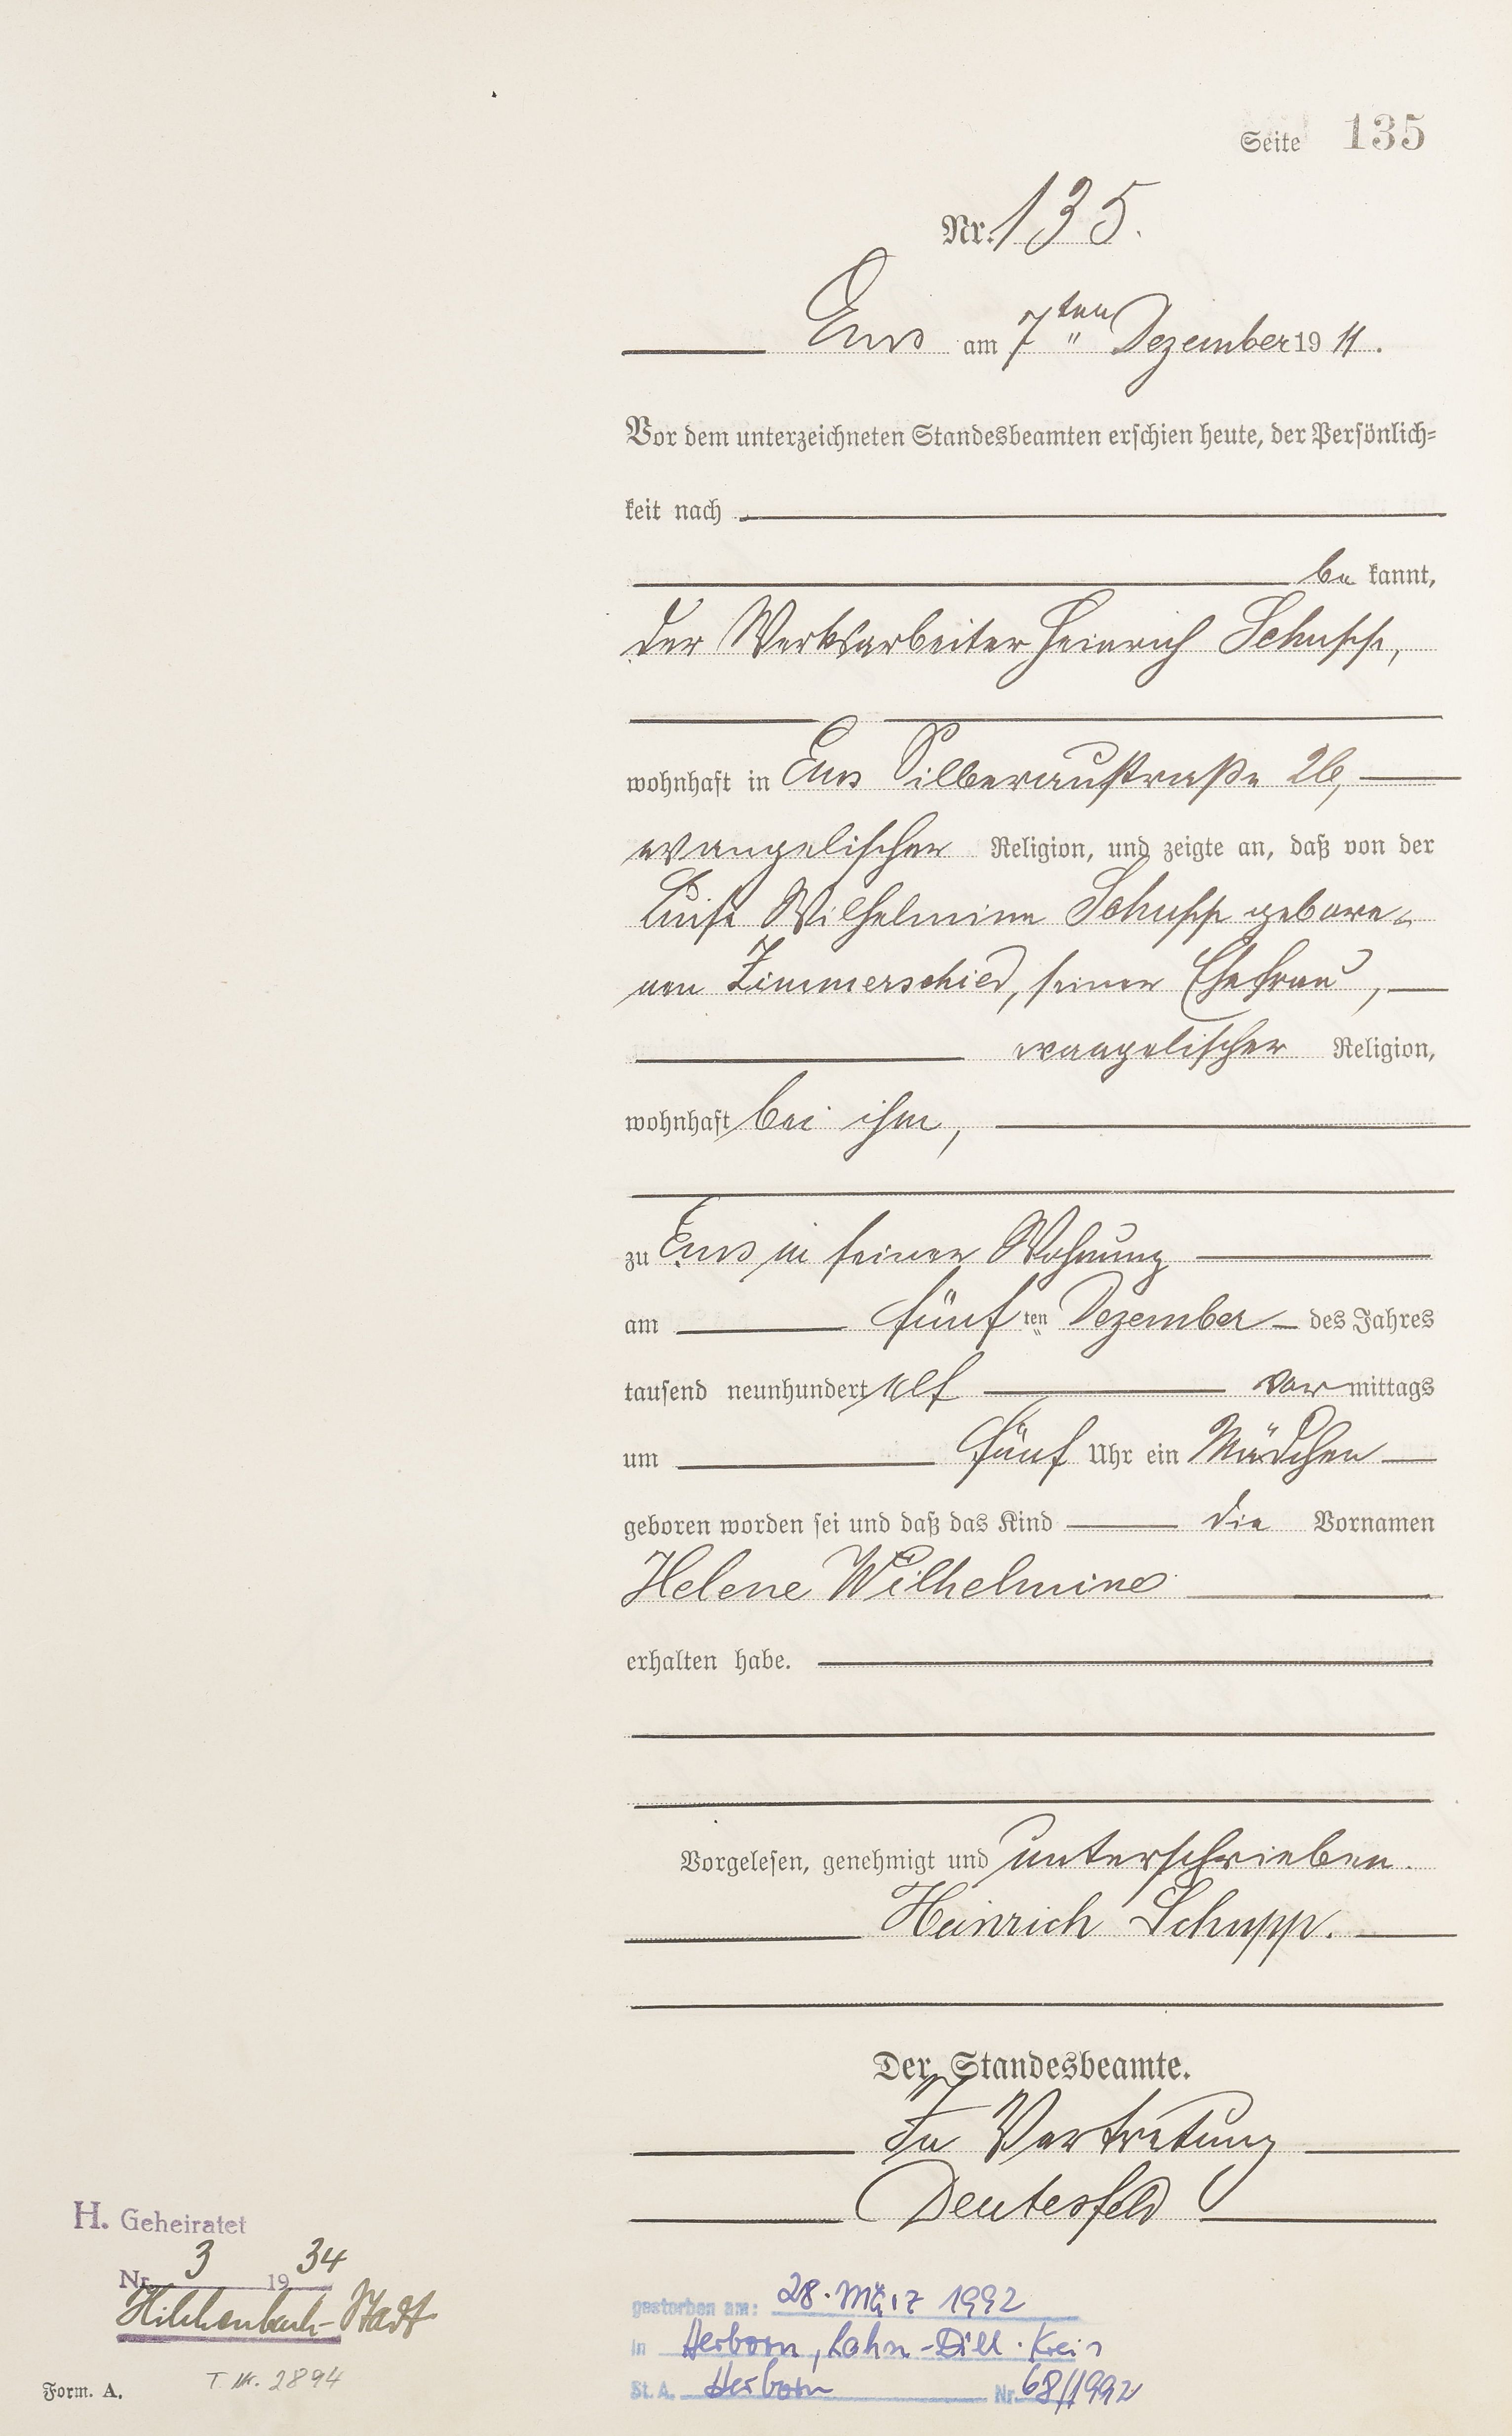 Seite 135
Nr. 135.
Ems am 7ten Dezember 19 11.
Vor dem unterzeichneten Standesbeamten erschien heute, der Persönlich-
keit nach
be kannt,
der Werksarbeiter Heinrich Schupp,
wohnhaft in Ems Silberaustraße 26,
evangelischer Religion, und zeigte an, daß von der
Luise Wilhelmine Schupp gebore-
nen Zimmerschied, seiner Ehefrau,
evangelischer Religion,
wohnhaft bei ihm,
zu Ems in seiner Wohnung
am fünf ten Dezember des Jahres
tausend neunhundert elf vor mittags
um fünf Uhr ein Mädchen
geboren worden sei und daß das Kind die Vornamen
Helene Wilhelmine
erhalten habe.
Vorgelesen, genehmigt und unterschrieben.
Heinrich Schupp.
Der Standesbeamte.
In Vertretung
Deutesfeld
H. Geheiratet
Nr. 3 19 34
Hilchenbach-Stadt
T. Nr. 2894
Form. A.
gestorben am: 28. März 1992
in Herborn, Lahn-Dill-Kreis
St. A. Herborn Nr. 68/1992